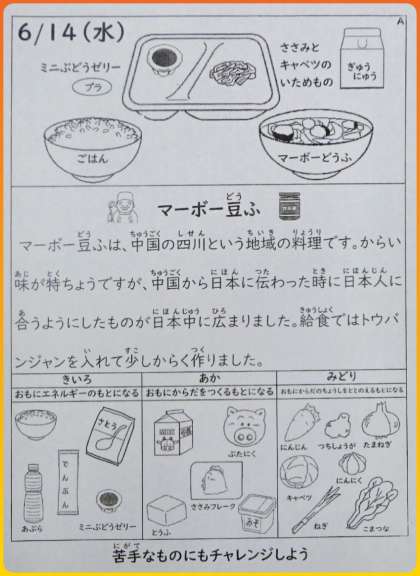 6/14(水)
A
ミニぶどうゼリー
プラ
ささみと
キャベツの
いためもの
ぎゅう
にゅう
ごはん
マーボーどうふ
マーボー豆ふ
マーボー豆ふは、中国の四川という地域の料理です。からい
味が特ちょうですが、中国から日本に伝わった時に日本人に
合うようにしたものが日本中に広まりました。給食ではトウバ
ンジャンを入れて少しからく作りました。
きいろ
おもにエネルギーのもとになる
あか
おもにからだをつくるもとになる
みどり
おもにからだのちょうしをととのえるもとになる
さとう
でんぷん
あぶら
ミニぶどうゼリー
ぶたにく
ささみフレーク
とうふ
みそ
にんじん
つちしょうが
たまねぎ
キャベツ
にんにく
ねぎ
こまつな
苦手なものにもチャレンジしよう